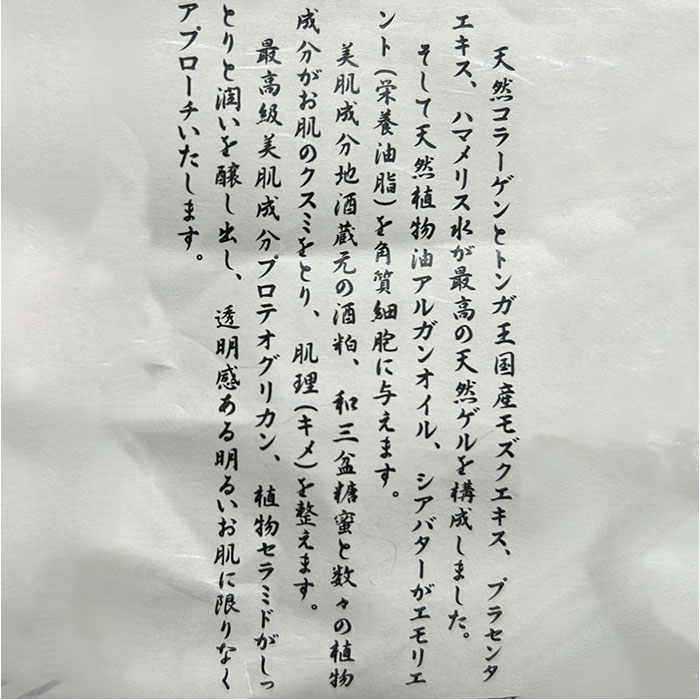 天然コラーゲンとトンガ王国産モズクエキス、プラセンタ
エキス、ハマメリス水が最高の天然ゲルを構成しました。
そして天然植物油アルガンオイル、シアバターがエモリエ
ント(栄養油脂)を角質細胞に与えます。
美肌成分地酒蔵元の酒粕、和三盆糖蜜と数々の植物
成分がお肌のクスミをとり、肌理(キメ)を整えます。
最高級美肌成分プロテオグリカン、植物セラミドがしっ
とりと潤いを醸し出し、透明感ある明るいお肌に限りなく
アプローチいたします。